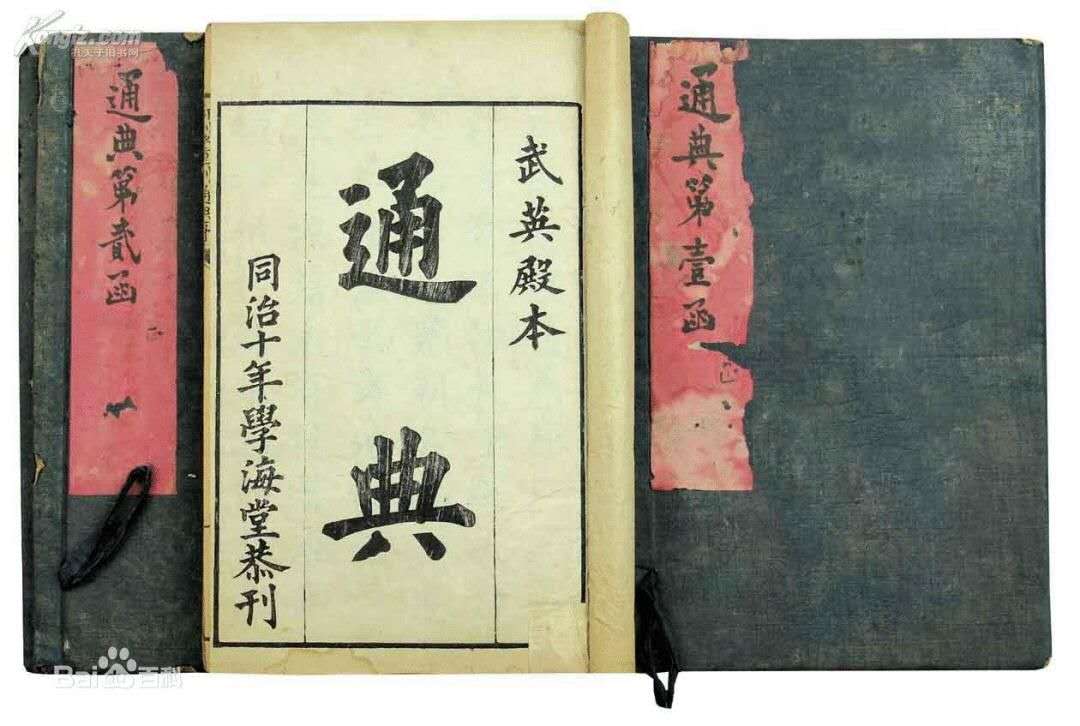 Kongfz.com
孔夫子旧书网
通典第壹函
武英殿本
通典
同治十年學海堂恭刊
通典第貳函
Bai百科